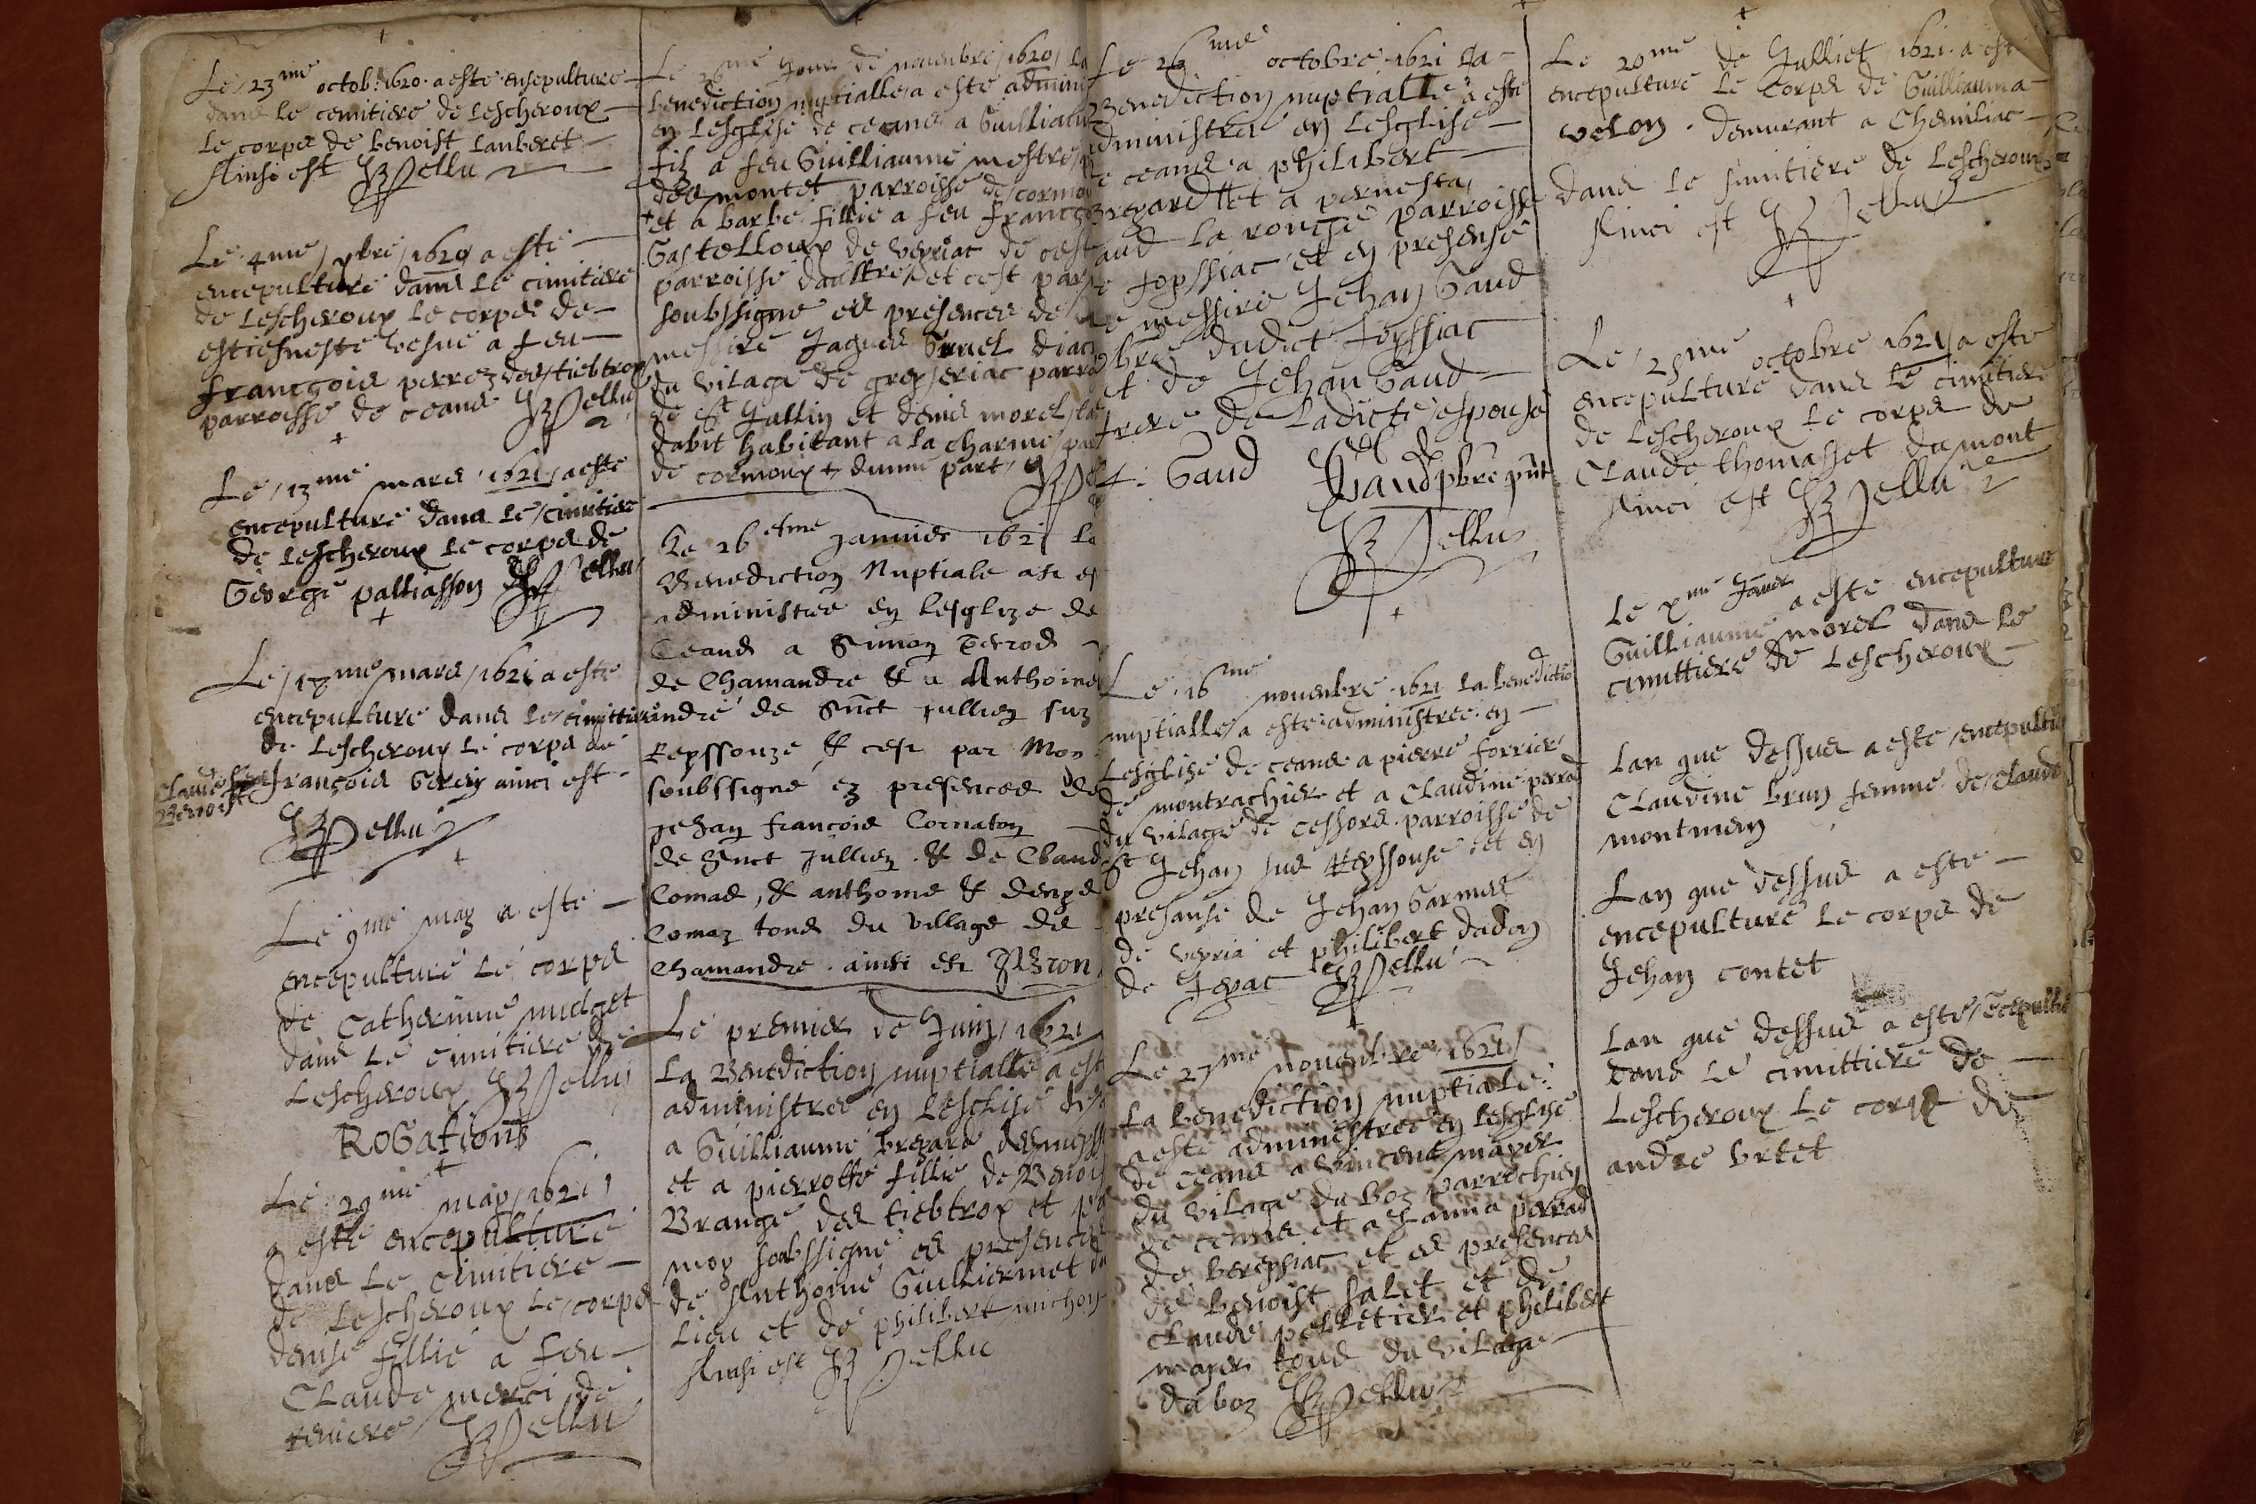 Le 23me octob: 1620 a este ensepulture
dans le cemitiere de Lescheroux
Le corps de benoist Lauberet
Ainsi est BPellu
Le 4me xbre 1620 a este
encepulture dans Le cimitiere
de Lescheroux Le corps de
estiefneste vesue a feu
francgois perrez des tiebtrop
parroisse de ceans BPellu
Le 13me mars 1621 a este
encepulture dans Le cimitiere
de Lescheroux Le corps de
George palliasson BPellu
Le mars 1621 a este
encepulture dans Le cimittiere
de Lescheroux Le corps de
françois Gerey ainci est
Claude
Benoist
BPellu
Le 9me may a este
encepulture Le corps
de Catherinne
dans Le cimitiere de
Lescheroux BPellu
ROGations
Le 29me may 1621
a este encepulture
dans Le cimitiere
de Lescheroux Le corps
denise fillie a feu
CLaude merci de
BPellu
Le 26me Jour de novenbre 1620 La
benediction nuptialle a este admini
en Lesglise de ceans a Guilliau
filz a feu Guilliaume mestre
des montet parroisse de cormo
et a barbe fillie a feu francgo
Gastelloux de veyriac de cest
parroisse daultre et cest par
soubssigne es presences de
messire Jaques Gruel diac
du vilaga de parro
de St Jullin et denis morel
dabit habitant a La charme par
de cormoux dunne part
Le 26esme Januier 1621 la
Benediction Nuptiale ast es
administree en lesglize de
Ceans a Simon
de Chamandre & a Anthoine
andre de Sinct jullien suz
Repssouze & cest par Moy
soubssigne ez presences de
jehan françois Cornaton
de Sinct Jullien & de Claud
Comas, & anthoine & denys
Comaz tous du village de
Chamandre ainsi est
Le premier de Juin 1621
La Benediction nuptialle a est
administree en Lesglise de
a Guilliaume brepard
et a pierrotte fillie de Benois
Brange des tiebtrop et pa
moy soubssigne es presences
de Anthoine Guilliermet du
Lieu et de philibert michon
Ainsi est BPellu
Le 26me octobre 1621 La
Benediction nuptialle a este
dministree en Lesglise
e ceans a philibert
brepard et a pernesta
aud La rongé parroisse
e foyssiac et en presense
e messire Jehan Gaud
pbre dudict foyssiac
et de Jehan Gaud
frere de Ladicte espouse
Gaud Gaud pbre pnt
BPellu
Le 16me novenbre 1621 La benedictio
nuptialle a este administree en
Lesglise de ceans a pierre forrier
de montrachier et a CLaudine perrad
du vilage de cessors parroisse de
St Jehan sus Reyssouse et en
presanse de Jehan Garnier
de veyria et philibert dadon
de Jayac BPellu
Le 27me novenbre 1621
La benediction nuptiale
a este administree en Lesglise
de ceans a vincent mayer
du vilage du boz parrochien
de ceans et a Janna perrad
de bereyssiac et es presences
de benoist salet et de
claude pelletier et philibert
mayer tous du vilage
du boz BPellu
Le 20me de Julliet 1621 a este
encepulture Le Corps de Guilliauma
velon demurant a Chemiliac
dans Le simitiere de Lescheroux
Ainci est BPellu
Le octobre 1621 a este
encepulture dans Le cimitiere
de Lescheroux Le corps de
CLaude thomasset du mont
Ainci est BPellu
Le xme Janvier a este encepulture
Guilliaume morel dans le
cimittiere de Lescheroux
Lan que dessus a este encepultu
CLaudine brun femme de Claude
montmen
Lan que dessus a este
encepulture Le corps de
Jehan contet
Lan que dessus a este ecepultu
dans Le cimittiere de
Lescheroux Le corps de
andre vrtet